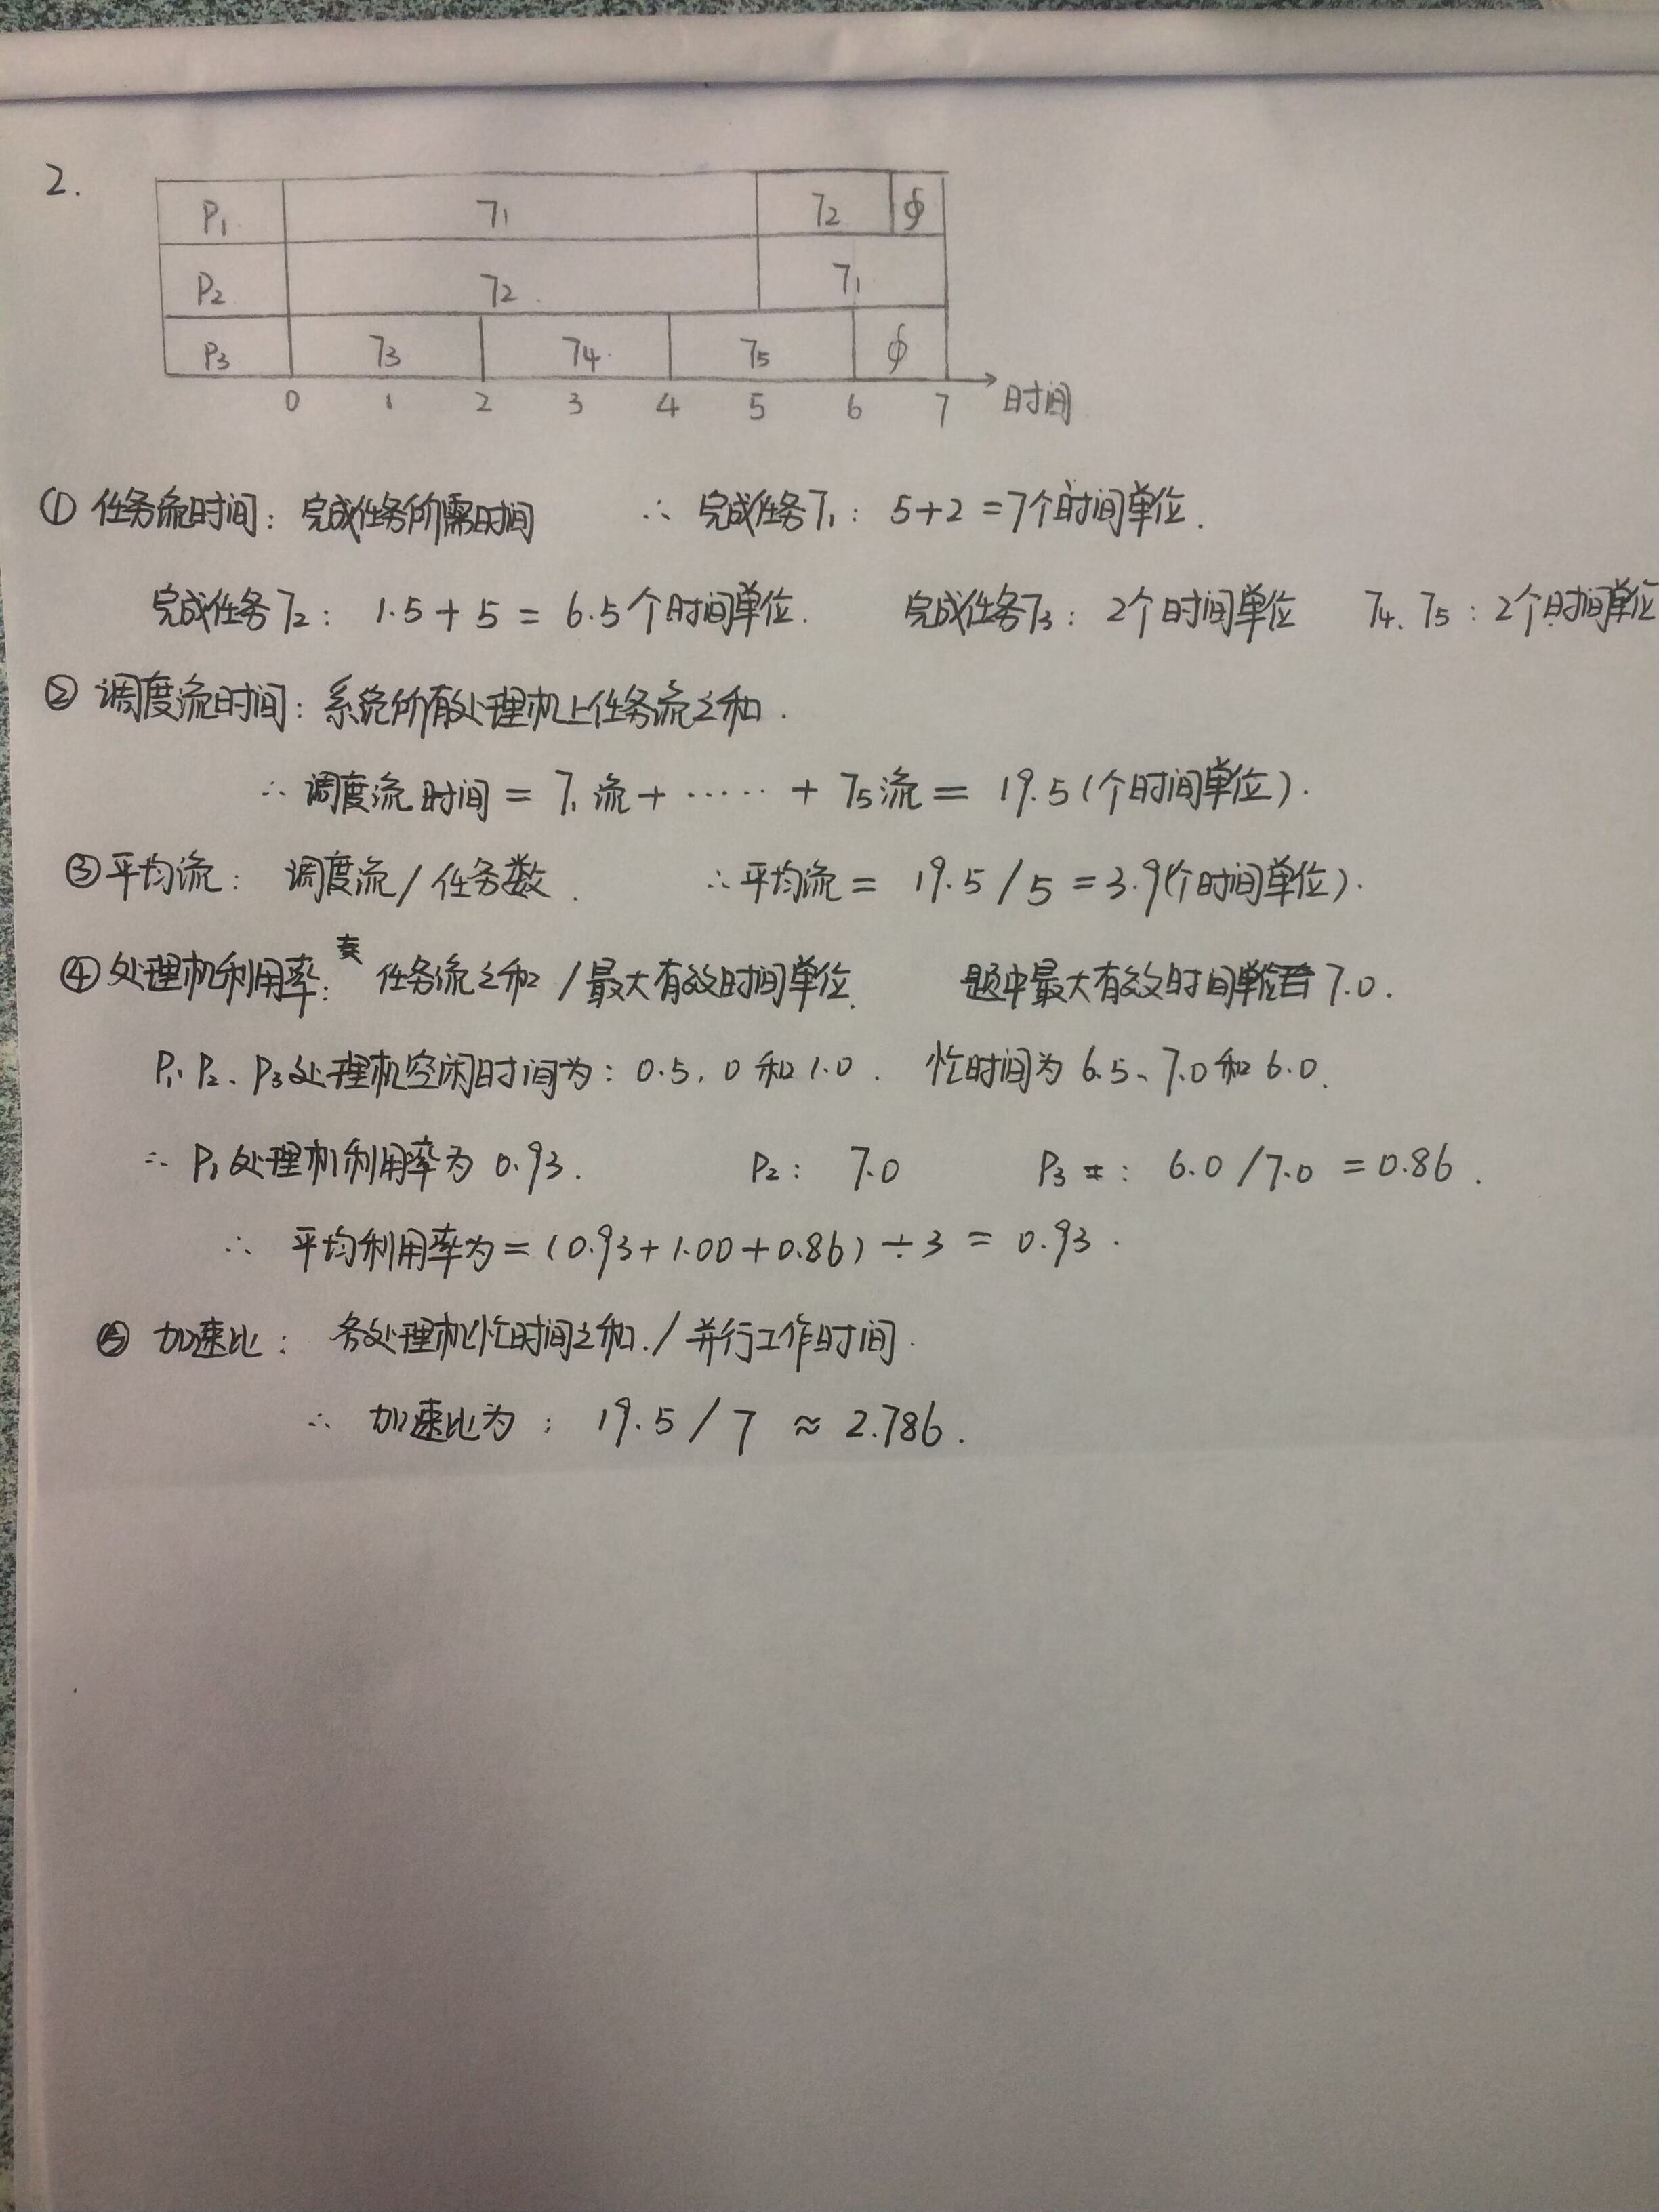 2.
P1 T1 T2 φ
P2 T2 T1
P3 T3 T4 T5 φ
0 1 2 3 4 5 6 7 时间
① 任务流时间: 完成任务所需时间 ∴ 完成任务T1: 5+2=7个时间单位.
完成任务T2: 1.5+5=6.5个时间单位. 完成任务T3: 2个时间单位 T4、T5: 2个时间单位
② 调度流时间: 系统所有处理机上任务流之和.
∴ 调度流时间 = T1流+……+T5流 = 19.5(个时间单位).
③ 平均流: 调度流/任务数. ∴平均流 = 19.5/5=3.9(个时间单位).
④ 处理机利用率: 任务流之和/最大有效时间单位. 题中最大有效时间单位 7.0.
P1、P2、P3处理机空闲时间为: 0.5, 0和1.0. 忙时间为6.5、7.0和6.0.
∴ P1处理机利用率为0.93. P2: 7.0 P3: 6.0/7.0=0.86.
∴ 平均利用率为=(0.93+1.00+0.86)÷3=0.93.
⑤ 加速比: 各处理机忙时间之和./并行工作时间.
∴ 加速比为: 19.5/7≈2.786.